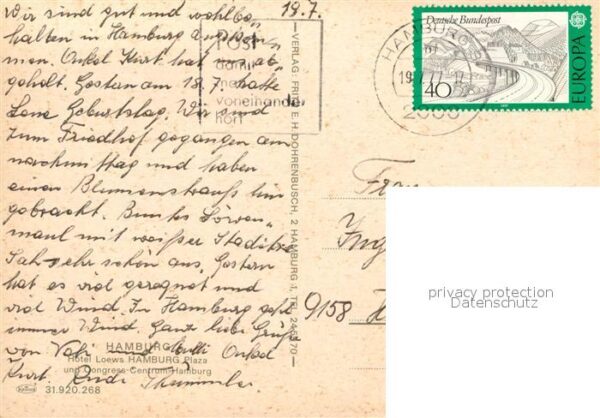 19.7.
Wir sind gut und wohlbe-
halten in Hamburg angekom-
men. Onkel Kurt hat ab-
geholt. Gestern am 18.7. hatte
Lene Geburtstag. Wir sind
zum Friedhof gegangen am
nachmittag und haben
einen Blumenstrauß hin
gebracht. Buntes Löwen-
maul mit weißer
Sah sehr schön aus. Gestern
hat es viel geregnet und
viel Wind. In Hamburg geht
immer Wind. Ganz liebe Grüße
von und Onkel
Kurt.
POST
damit
man
voneinander
hört
VERLAG FRIEDR. E. H. DOHRENBUSCH, 2 HAMBURG 1, TEL. 24 55 70
HAMBURG
Hotel Loews HAMBURG Plaza
und Congress-Centrum Hamburg
31.920.268
HAMBURG
77-17
2000
Deutsche Bundespost
40
EUROPA
Frau
Ing
9158
privacy protection
Datenschutz